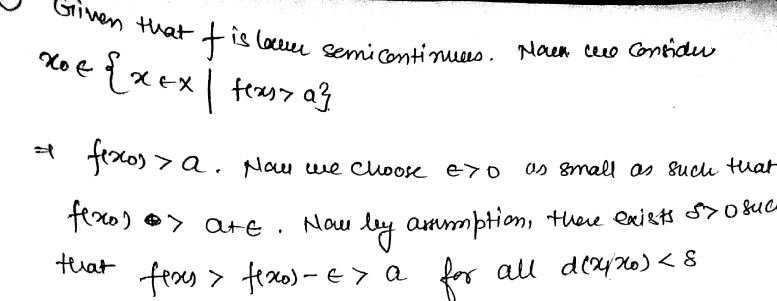 Given that f is lower semicontinues. Now we consider
x₀ ∈ {x ∈ X | f(x) > a}
⇒ f(x₀) > a. Now we choose ε > 0 as small as such that
f(x₀) > a+ε. Now by assumption, there exists δ > 0 suc
that f(x) > f(x₀) - ε > a for all d(x, x₀) < δ